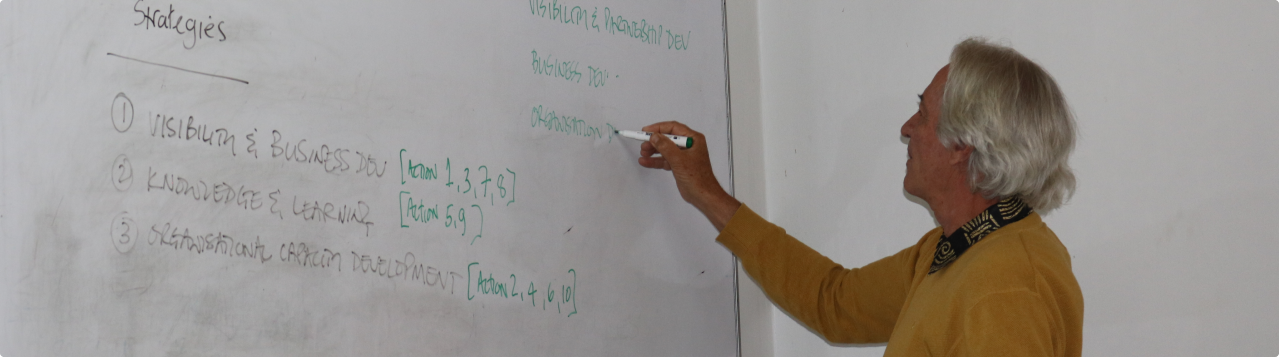 Strategies
① VISIBILITY & BUSINESS DEV [ACTION 1, 3, 7, 8]
② KNOWLEDGE & LEARNING [ACTION 5, 9]
③ ORGANISATIONAL CAPACITY DEVELOPMENT [ACTION 2, 4, 6, 10]
VISIBILITY & PARTNERSHIP DEV
BUSINESS DEV.
ORGANISATION D